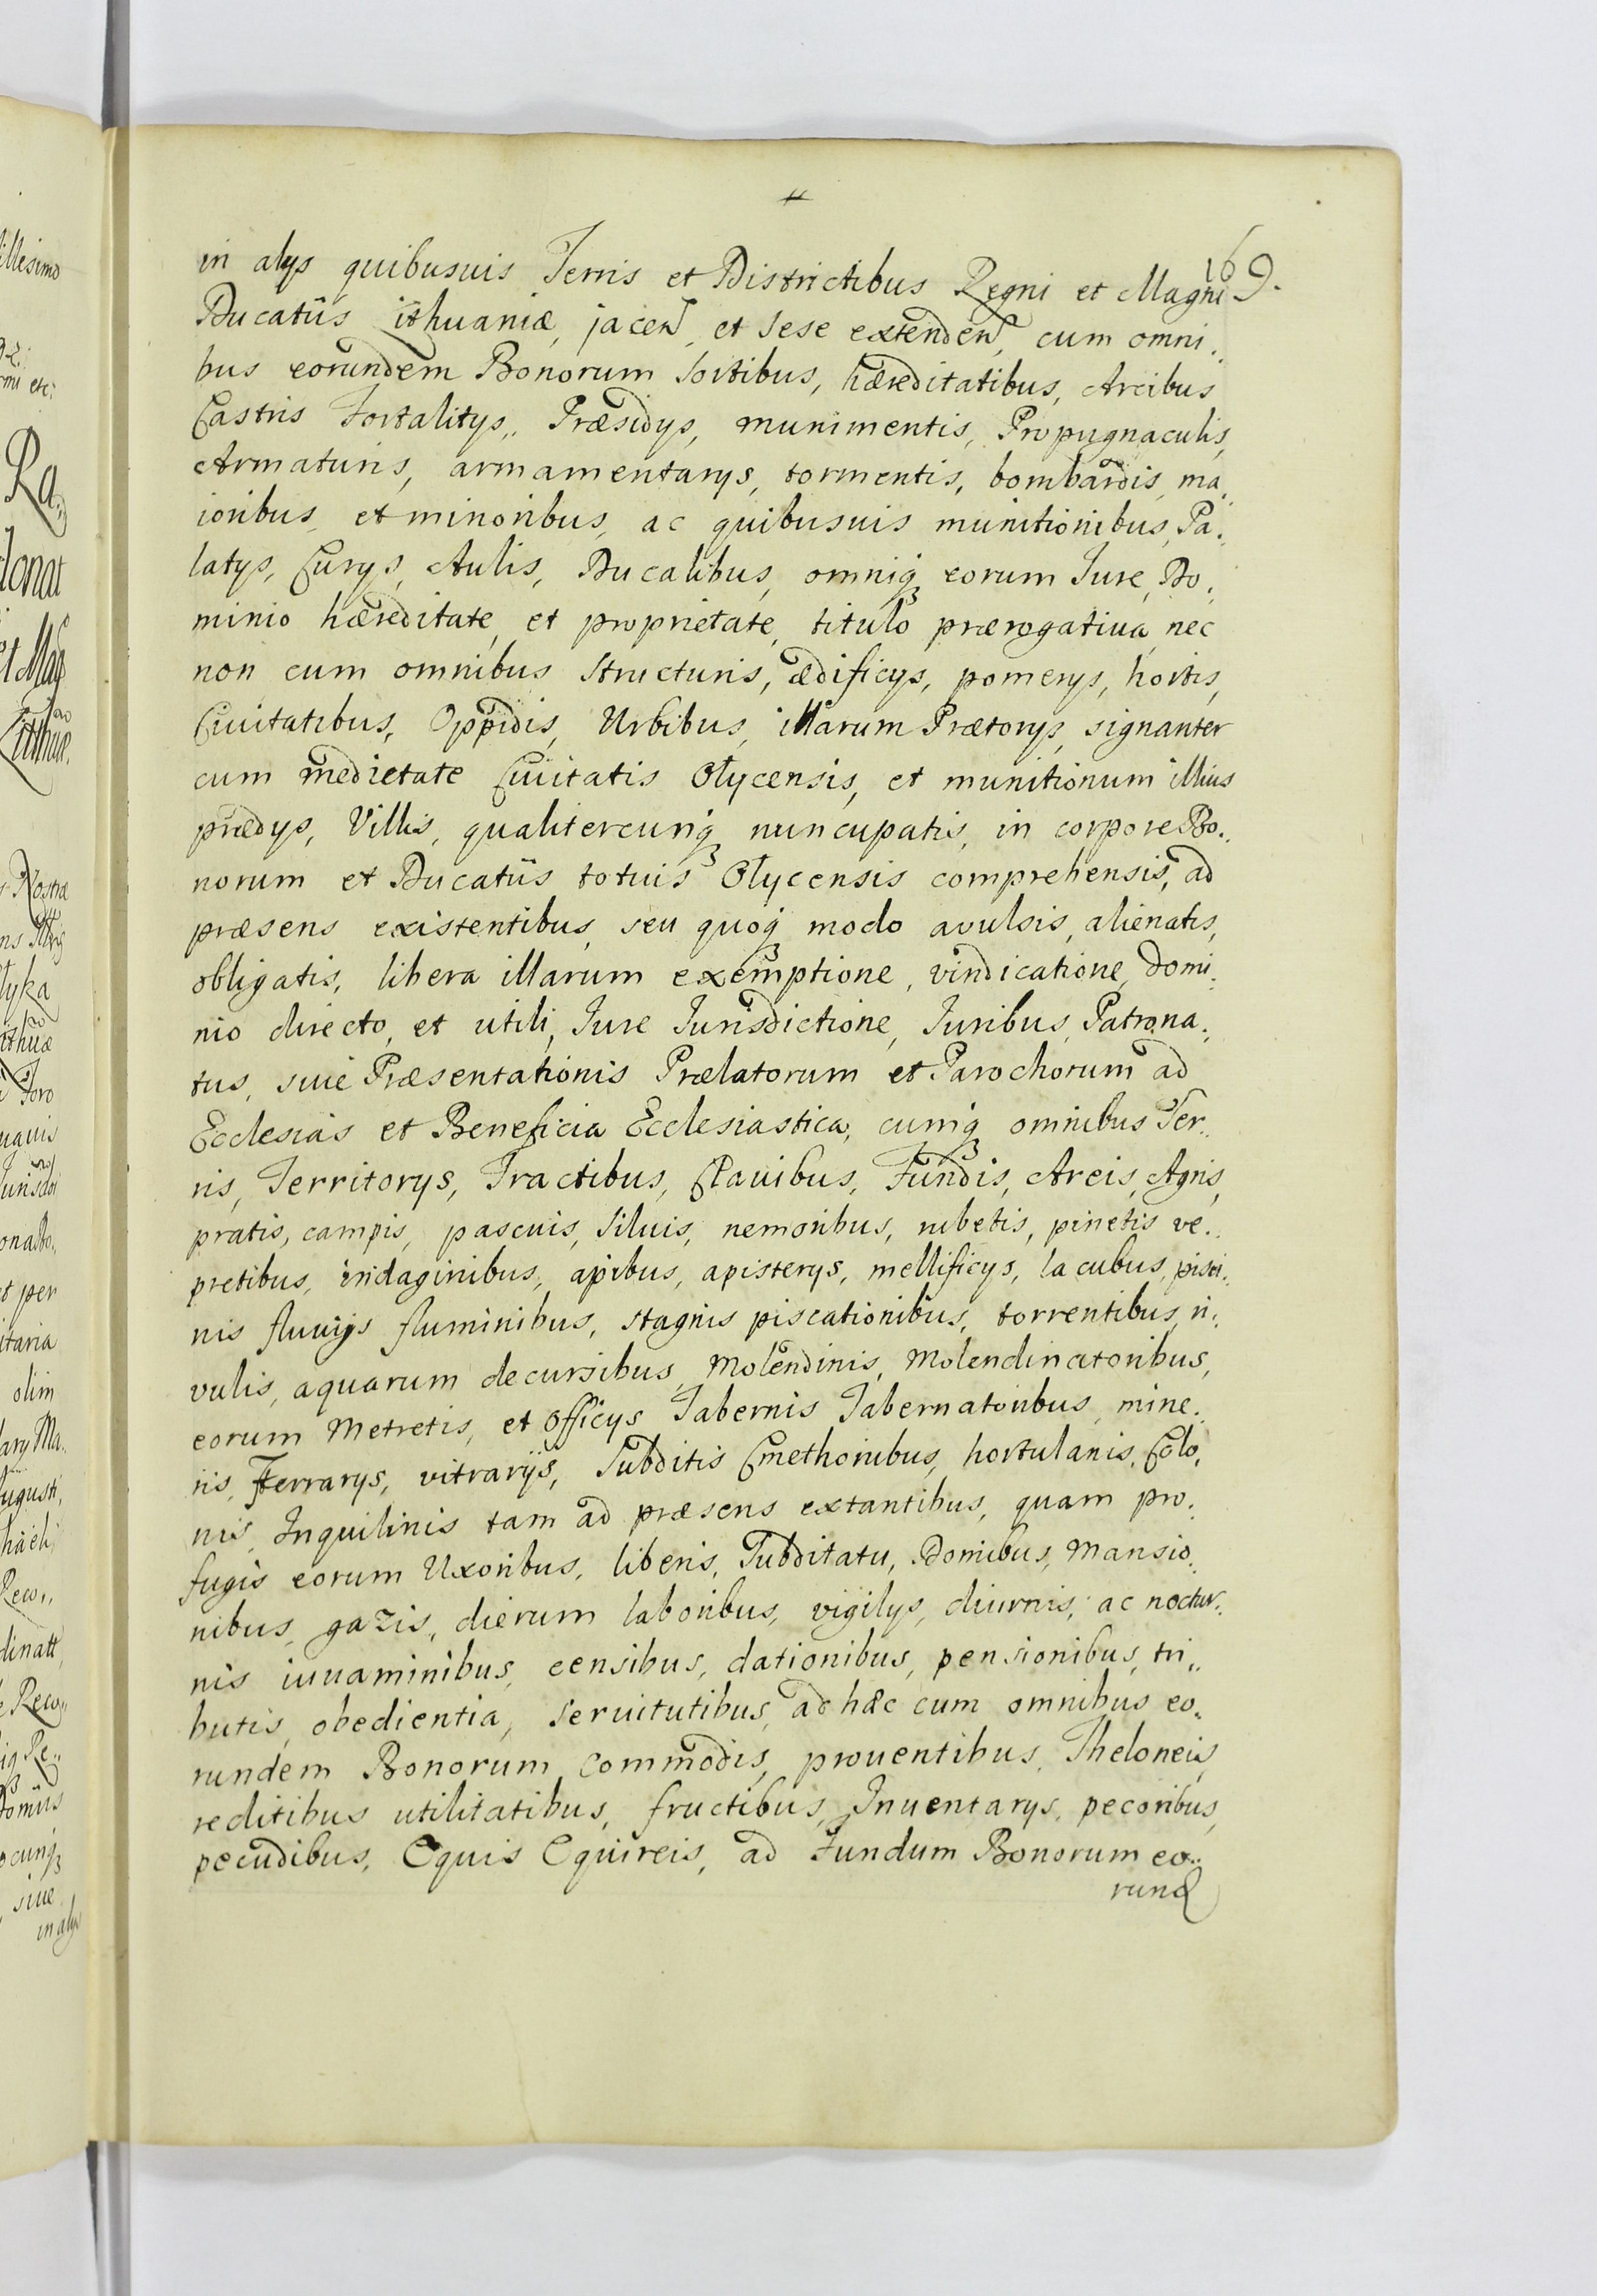 169.
in alys quibusuis Terris et Districtibus Regni et Magni
Ducatüs Lithuaniæ, jaceñ, et sese extendeñ, cum omni„
bus eorundem Bonorum Sortibus, hæreditatibus, Arcibus
Castris Fortalitys„ Præsidys, munimentis, Propugnaculis,
Armaturis, armamentarys, tormentis, bombardis, ma„
ioribus, et minoribus, ac quibusuis munitionibus, Pa„
latys, Curys, Aulis, Ducalibus, omniq̃ eorum Jure, Do„
minio hæreditate, et proprietate, titulo prærogatiua, nec
non cum omnibus structuris, ædificys, pomerys, hortis,
Ciuitatibus, Oppidis, Urbibus, illarum Prætorys, signanter
cum medietate Ciuitatis Ołycensis, et munitionum illius
prædys, Villis, qualitercunq̃ nuncupatis, in corpore Bo„
norum et Ducatüs totius Ołycensis comprehensis, ad
præsens existentibus, seu quoq̃ modo avulsis, alienatis,
obligatis, libera illarum exemptione, vindicatione, domi„
nio directo, et utili, Jure Jurisdictione, Juribus, Patrona„
tus, siue Præsentationis Prælatorum et Parochorum ad
Ecclesias et Beneficia Ecclesiastica, cumq̃ omnibus Ter„
ris, Territorys, Tractibus, Clauibus, Fundis, Areis, Agris,
pratis, campis, pascuis, siluis, nemoribus, rubetis, pinetis ve„
pretibus, indaginibus, apibus, apisterys, mellificys, lacubus, pisci„
nis fluuijs fluminibus, stagnis piscationibus, torrentibus, ri„
vulis, aquarum decursibus, Molendinis, Molendinatoribus,
eorum Metretis, et officys Tabernis Tabernatoribus, mine„
ris, Ferrarys, vitrarijs, Subditis Cmethonibus, hortulanis, Colo„
nis, Inquilinis tam ad præsens extantibus, quam pro„
fugis eorum Uxoribus, liberis, Subditatu, Domibus, Mansio„
nibus, gazis, dierum laboribus, vigilys, diurnis, ac noctur„
nis iuuaminibus, censibus, dationibus, pensionibus, tri„
butis, obedientia, seruitutibus, ad hæc cum omnibus eo„
rundem Bonorum commodis, prouentibus, Theloneis,
reditibus utilitatibus, fructibus, Inuentarys, pecoribus,
pecudibus, Equis Equireis, ad Fundum Bonorum eo„
rund